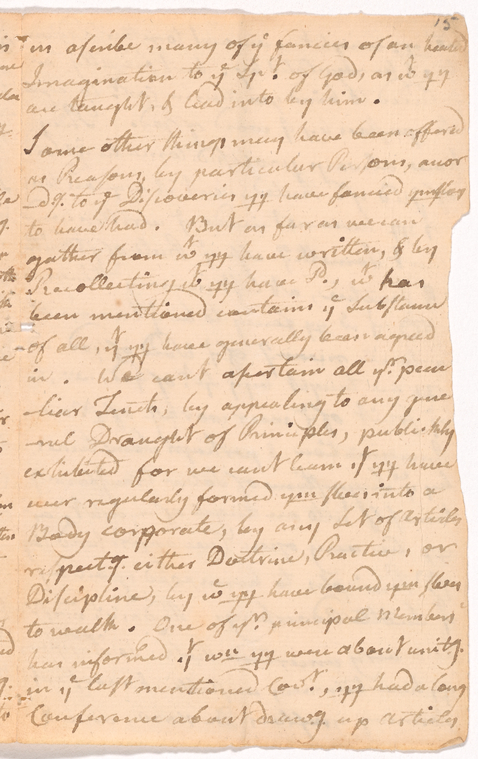 15
us ascribe many of yͤ fancies of an heated
Imagination to yͤ Spᵗ. of God, as wᵗ yy
are taught, & lead into by him.
Some other things may have been offered
as Reasons, by particular Persons, accor
-dg. to yͤ Discoveries yy have fancied ymselves
to have had. But as far as we can
gather from wᵗ yy have written, & by
Recollecting wᵗ yy have Pd., wᵗ has
been mentioned contains yͤ Substance
of all, yᵗ yy have generally been agreed
in. We can't asertain all yʳ. pecu
-liar Tenets, by appealing to any gene
-ral Draught of Principles, publickly
exhibited for we can't learn yᵗ yy have
ever regularly formed ymselves into a
Body corporate, by any Set of Articles
respectg. either Doctrine, Practice, or
Discipline, by wᶜ yy have bound ymselves
to walk. One of yʳ. principal Members
has informed yᵗ wn yy were about unitg.
in yͤ last mentioned Covᵗ., yy had a long
Conference about drawg. up Articles